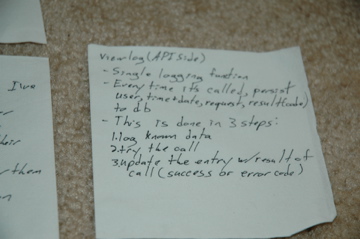 viewlog (API side)
- Single logging function
- Every time its called, persist
user, time+date, request, result(code)
to db
- This is done in 3 steps:
1. log known data
2. try the call
3. update the entry w/result of
call (success or error code)
I've
their
them